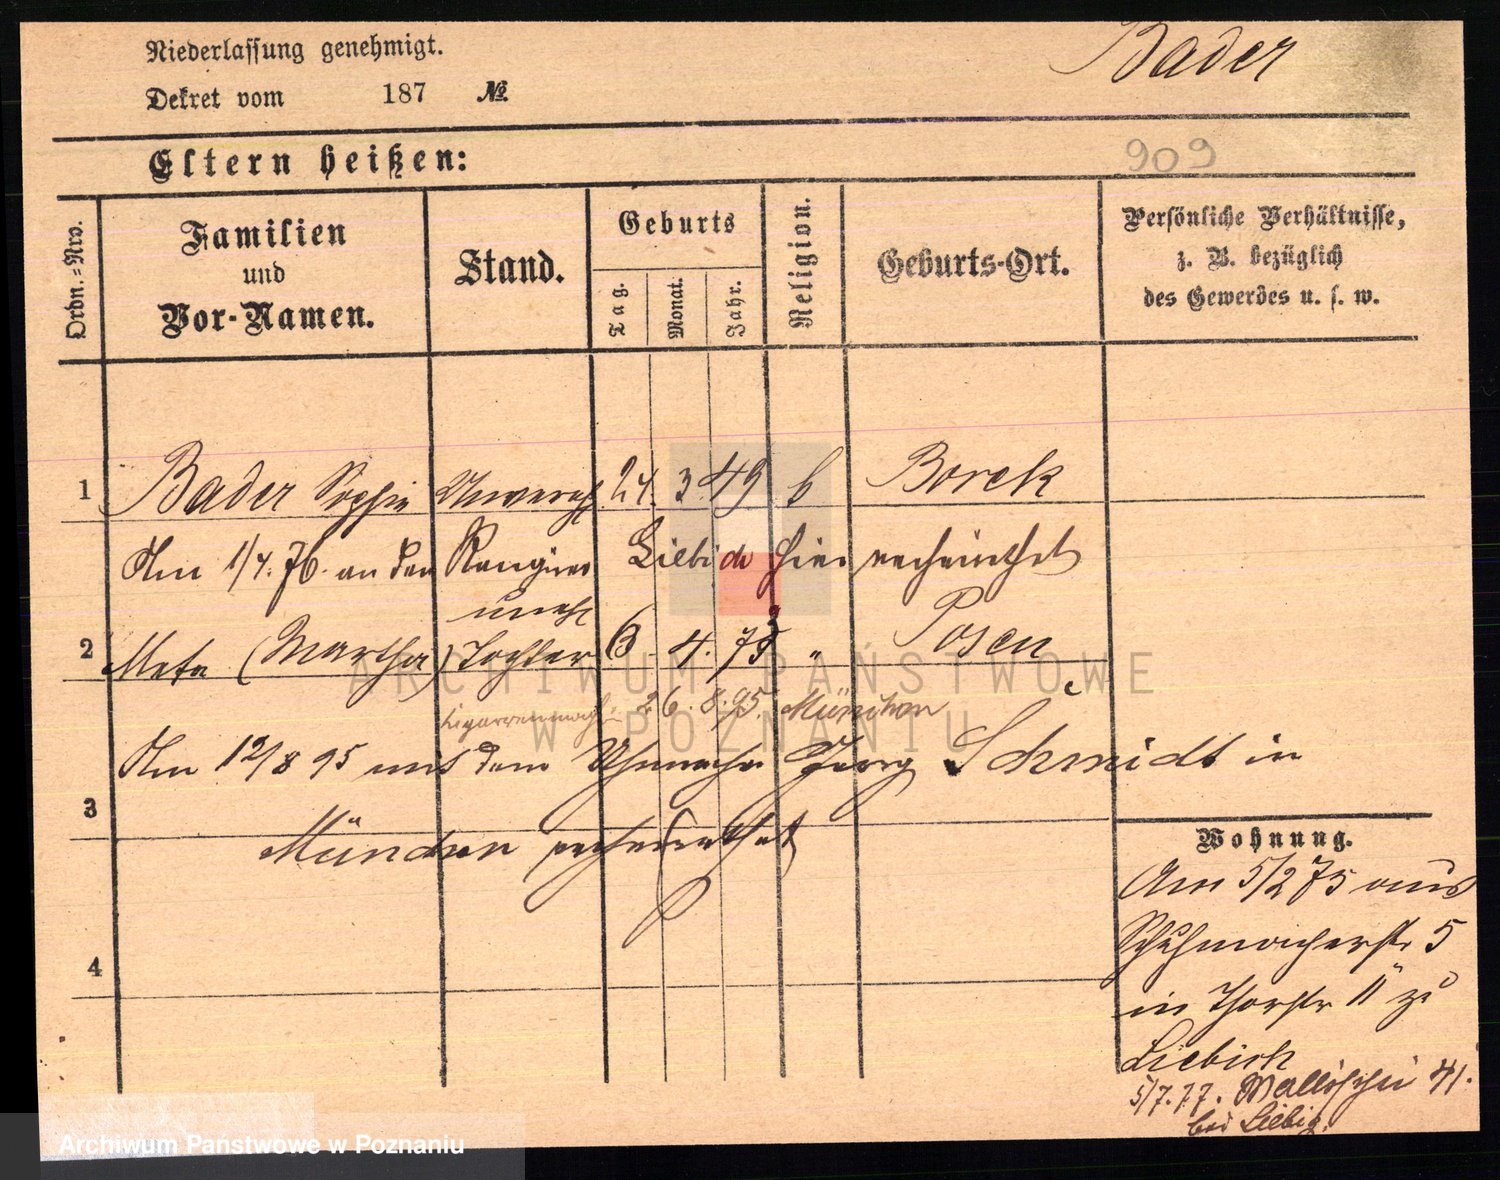 Niederlassung genehmigt.
Bader
Dekret vom 187 №.
Eltern heißen:
909
Ordn.=Nro.
Familien
und
Vor-Namen.
Stand.
Geburts
Tag.
Monat.
Jahr.
Religion.
Geburts-Ort.
Persönliche Verhältnisse,
z. B. bezüglich
des Gewerbes u. s. w.
1 Bader Sophie Unvereh. 24. 3. 49 k Borek
Am 1/4. 76. an den Rangirer hier verheirathet
uneh
2 Meta (Martha) Tochter 6. 4. 75 " Posen
ARCHIWUM PAŃSTWOWE
W POZNANIU
Cigarrenmach. 26. 8. 95. München
Am 12/8 95 mit dem Uhrmacher Georg Schmidt in
3
München verheirathet
Wohnung.
Am 5/2 75 aus
Schuhmacherstr 5
in Thorstr 11 zu
4
Liebich
5/7. 77. Wallischei 41.
bei Liebig.
Archiwum Państwowe w Poznaniu